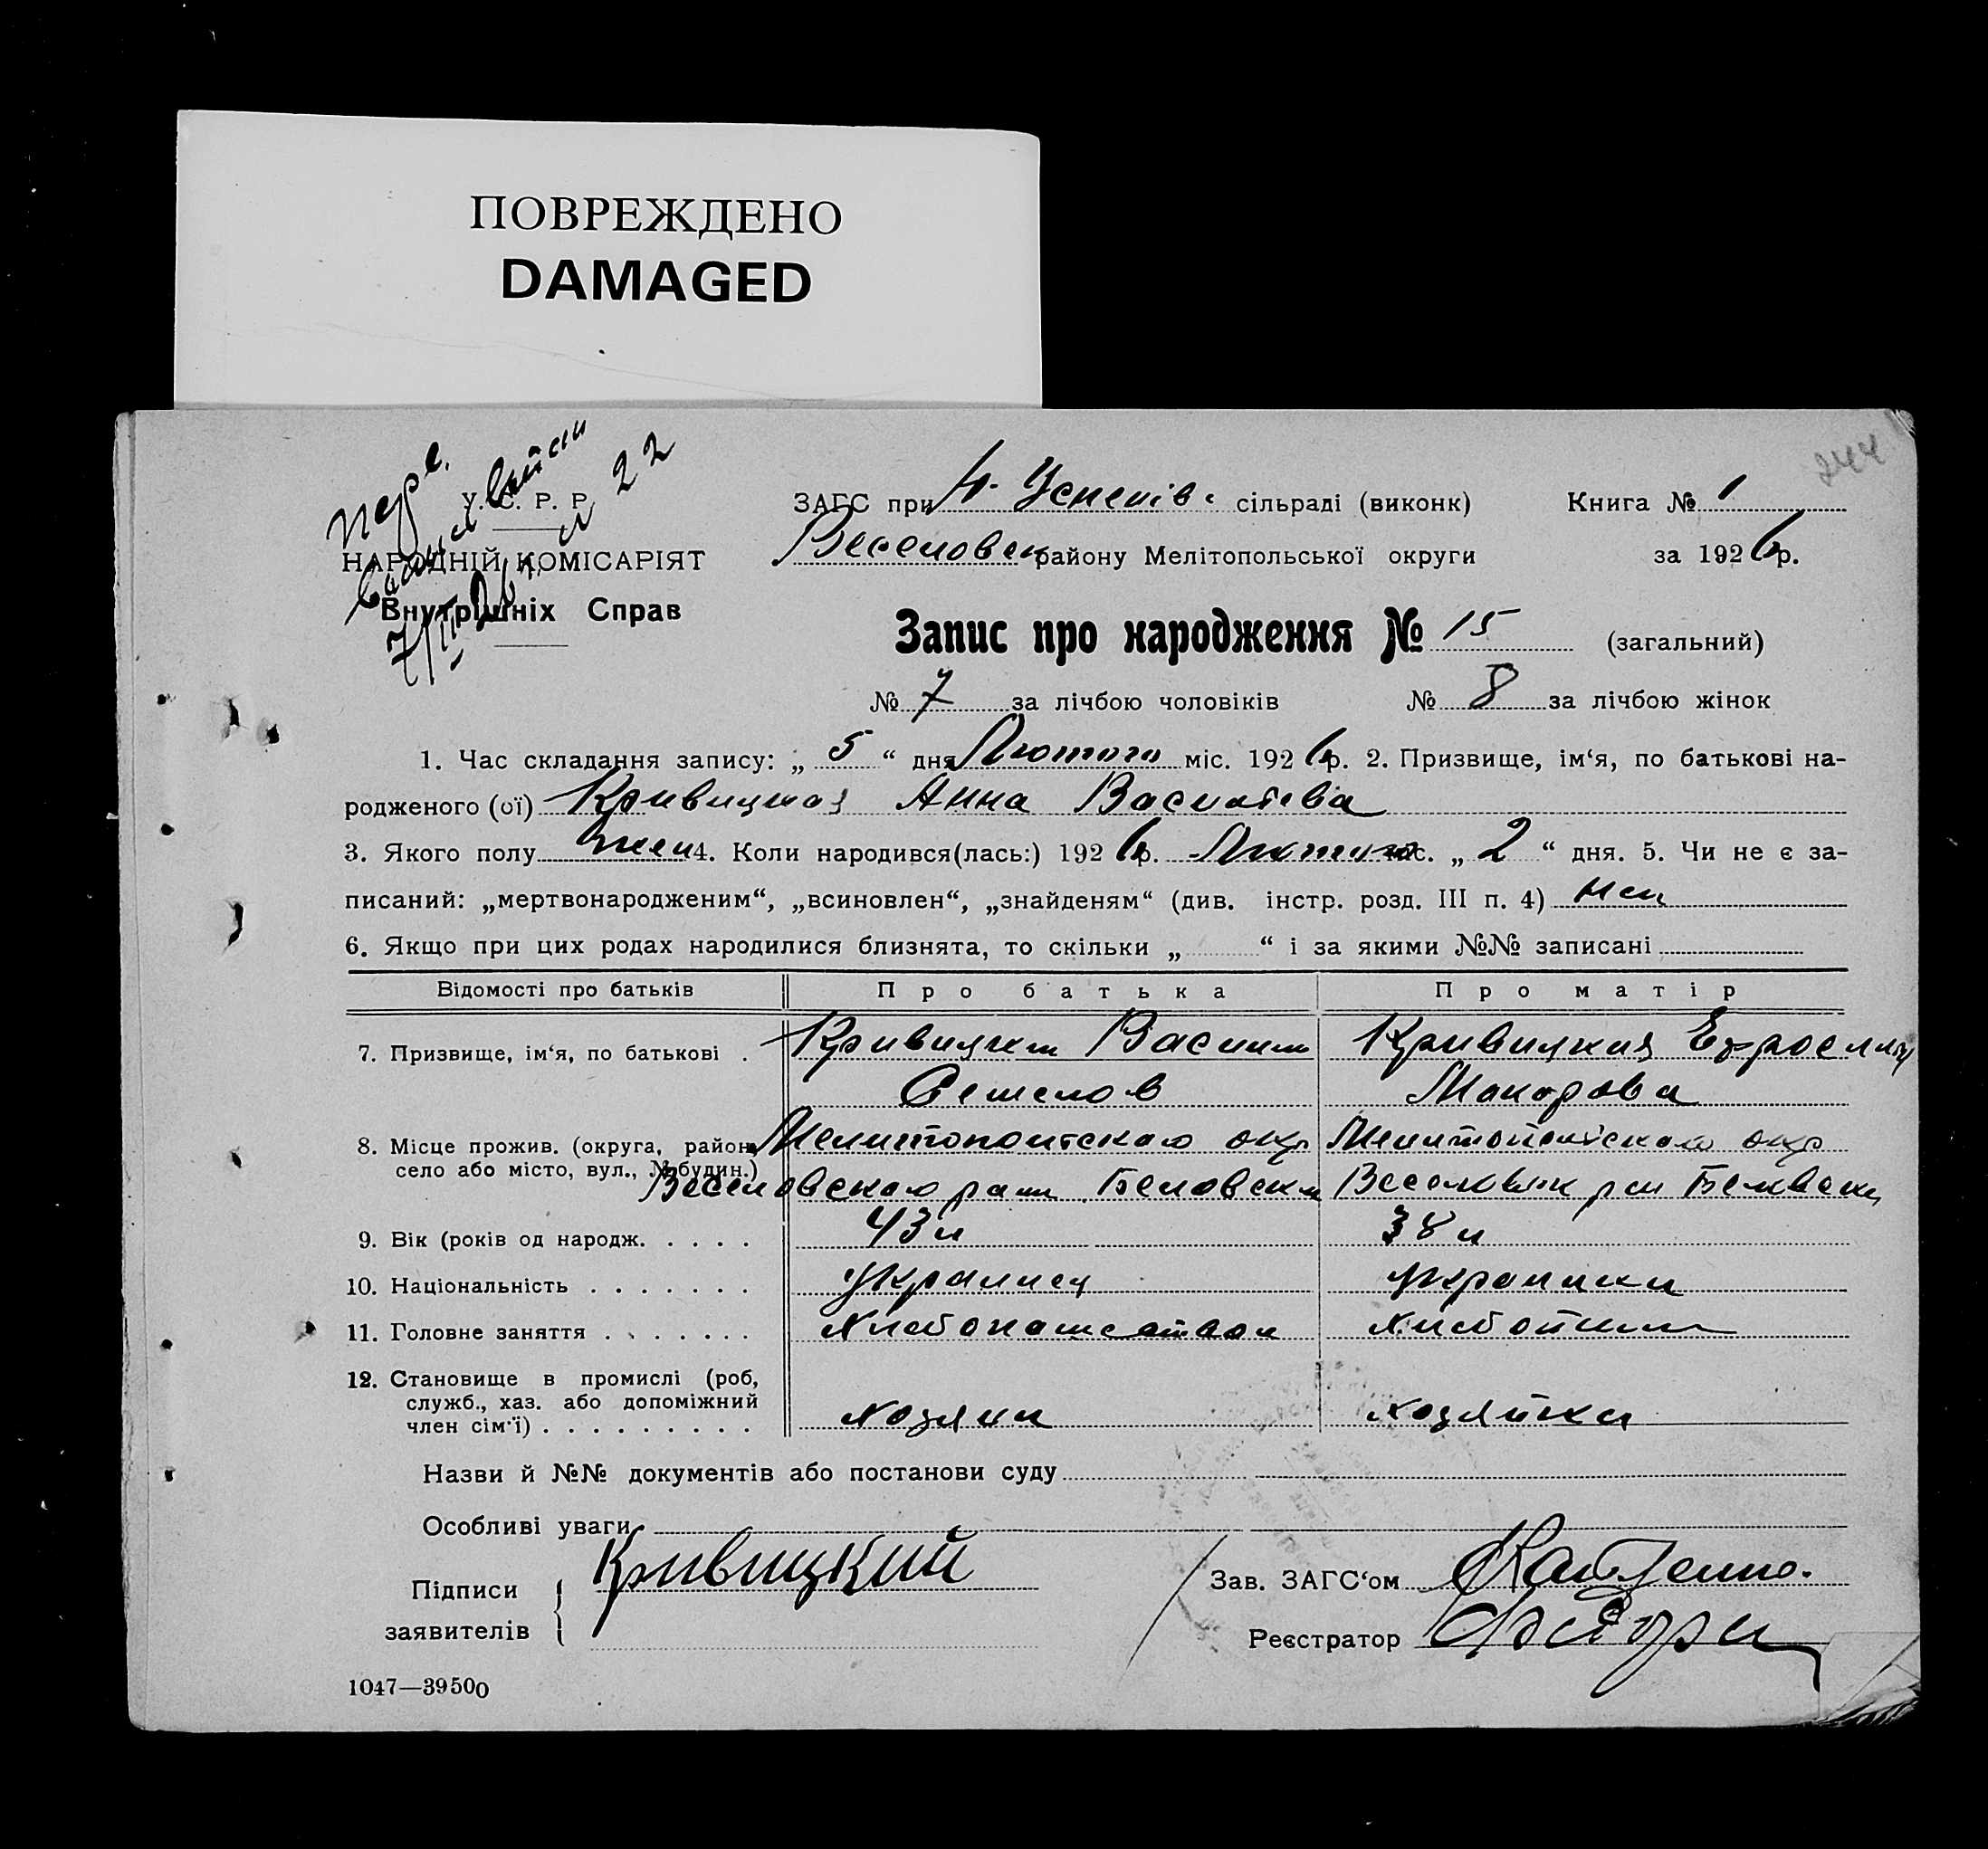 ПОВРЕЖДЕНО
DAMAGED
244
У. С. Р. Р.
НАРОДНІЙ КОМІСАРІЯТ
Внутрішніх Справ
ЗАГС при Успенів. сільраді (виконк) Книга № 1
Веселовск району Мелітопольської округи за 1926 р.
Запис про народження № 15 (загальний)
№ 7 за лічбою чоловіків № 8 за лічбою жінок
1. Час складання запису: „ 5 “ дня Лютого міс. 1926 р. 2. Призвище, ім‘я, по батькові на-
родженого (ої) Кривицкая Анна Васильева
3. Якого полу жен 4. Коли народився(лась:) 1926 р. Лютого міс. „ 2 “ дня. 5. Чи не є за-
писаний: „мертвонародженим“, „всиновлен“, „знайденям“ (див. інстр. розд. III п. 4)
6. Якщо при цих родах народилися близнята, то скільки „ “ і за якими №№ записані
Відомості про батьків Про батька Про матір
7. Призвище, ім‘я, по батькові . Кривицкий Василий Кривицкая
Макарова
8. Місце прожив. (округа, район, Мелитопольского окр Мелитопольского окр
село або місто, вул., № будин.) Веселовского Беловск
9. Вік (років од народж. . . . . 43 38
10. Національність . . . . . . . Украинец Украинка
11. Головне заняття . . . . . . .
12. Становище в промислі (роб,
служб., хаз. або допоміжний
член сім‘ї) . . . . . . . . . Хозяин хозяйка
Назви й №№ документів або постанови суду
Особливі уваги
Підписи Кривицкий Зав. ЗАГС‘ом
заявителів Реєстратор
1047—39500